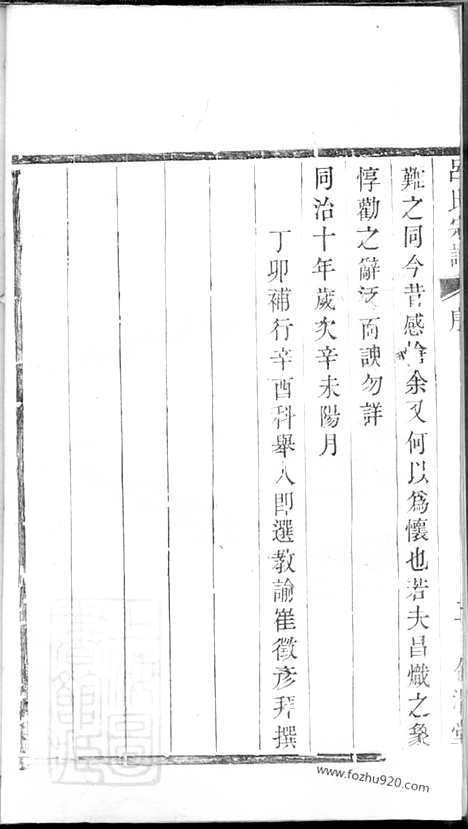 呂氏宗譜 序
難之同今昔感愴余又何以為懷也若夫昌熾之象
惇勸之辭泛而諛勿詳
同治十年歲次辛未陽月
丁卯補行辛酉科舉人即選教諭崔徵彥拜撰
www.fozhu920.com